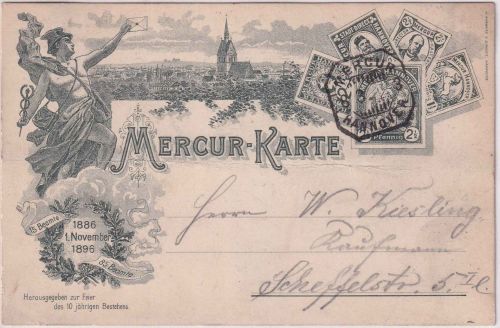 MERCUR-KARTE
HANNOVER
Pfennig 2½
15 Beamte
1886
1. November
1896
85 Beamte
Herausgegeben zur Feier
des 10 jährigen Bestehens.
Herrn W. Kiesling
Kaufmann
Scheffelstr. 5 II. l.